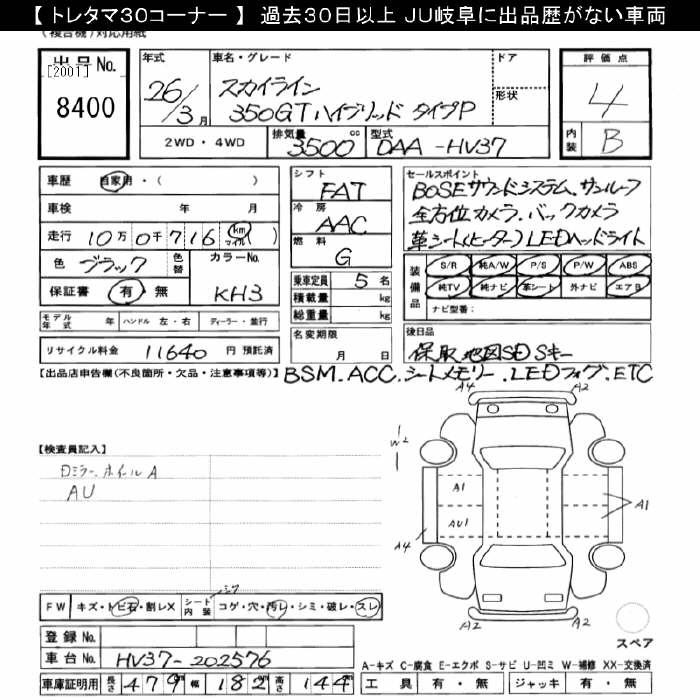 【 トレタマ30コーナー 】 過去30日以上 JU岐阜に出品歴がない車両
(複合機)対応用紙
出品No. [2001] 8400
年式 26/3月
車名・グレード スカイライン 350GT ハイブリッド タイプP
ドア
形状
2WD・4WD
排気量 3500 cc
型式 DAA-HV37
評価点 4
内装 B
車歴 自家用・( )
車検 年 月
走行 10万0千716 km マイル ( )
色 ブラック 色替 カラーNo. KH3
保証書 有・無
モデル年式 年 ハンドル 左・右 ディーラー・並行
リサイクル料金 11640 円 預託済
シフト FAT
冷房 AAC
燃料 G
乗車定員 5 名
積載量 kg
総重量 kg
名変期限 月 日
セールスポイント
BOSEサウンドシステム.サンルーフ
全方位カメラ.バックカメラ
革シート(ヒーター)LEDヘッドライト
装備品 S/R 純A/W P/S P/W ABS
純TV 純ナビ 革シート 外ナビ エアB
ナビ型番:
後日品 保.取.地図SD Sキー
【出品店申告欄(不良箇所・欠品・注意事項等)】
BSM.ACC.シートメモリー.LEDフォグ.ETC
【検査員記入】
Dミラー.ホイールA
AU
A4 A2
W2
A1 AU1 A1
A4
A2 A2
スペア
FW キズ・トビ石・割レX
シート内装 コゲ・穴・汚レ・シミ・破レ・スレ
シワ
登録No.
車台No. HV37-202576
車庫証明用 長さ 479 幅 182 高さ 144
A-キズ C-腐食 E-エクボ S-サビ U-凹ミ W-補修 XX-交換済
工具 有・無 ジャッキ 有・無